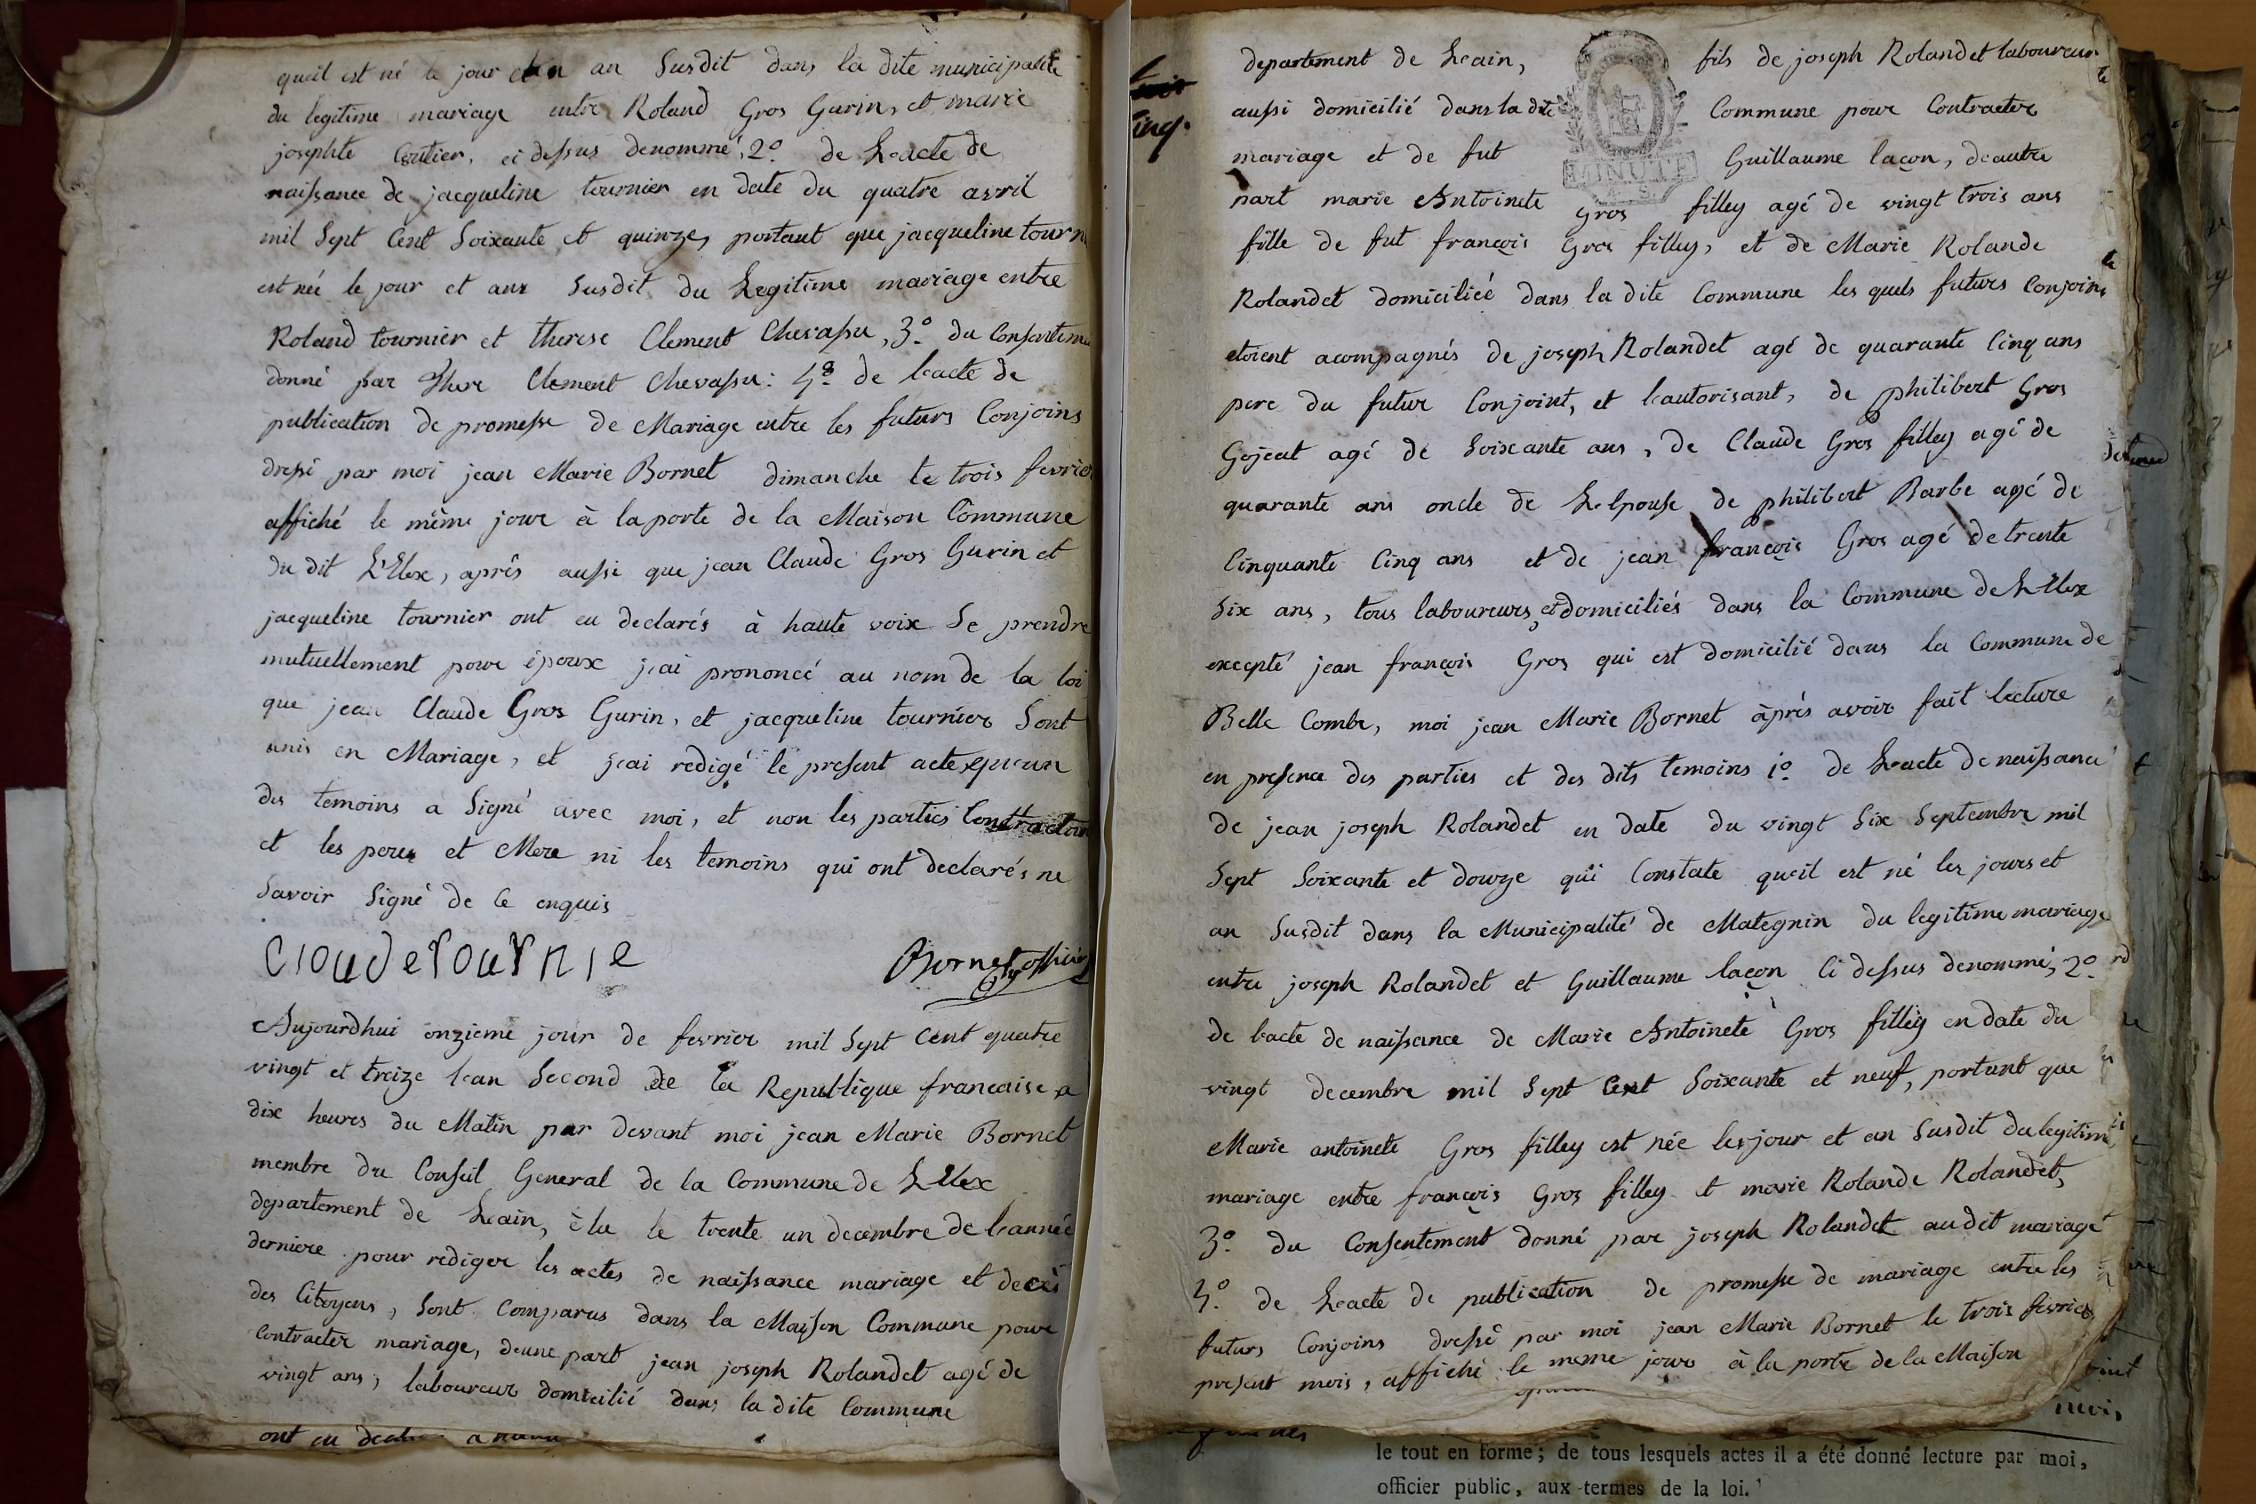 queil est né le jour et an susdit dans la dite municipalité
du legitime mariage entre Roland Gros Gurin, et marie
josephte ci dessus denommé, 2o. de Leacte de
naissance de jacqueline tournier en date du quatre avril
mil Sept Cent Soixante et quinze, portant que jacqueline tourn
est née le jour et ans susdit du Legitime mariage entre
Roland tournier et therese Clement Chevassu, 3o. du Consentime
donné par Clement Chevassu: 4o. de leacte de
publication de promesse de Mariage entre les futurs Conjoins
dressé par moi jean Marie Bornet dimanche le trois fevrier
affiché le même jour à la porte de la Maison Commune
du dit L'Elex, après aussi que jean Claude Gros Gurin et
jacqueline tournier ont eu declarés à haute voix Se prendre
mutuellement pour époux jeai prononcé au nom de la loi
que jean Claude Gros Gurin, et jacqueline tournier Sont
unis en Mariage, et jeai redigé le present acte queun
des temoins a Signé avec moi, et non les parties Contractan
et les peres et Mere ni les temoins qui ont declarés ne
Savoir Signé de Ce enquis
Cloude Tournie Bornet officier
Aujourdhui onzieme jour de fevrier mil Sept Cent quatre
vingt et treize lean Second de la Republique francaise a
dix heures du Matin par devant moi jean Marie Bornet
membre du Conseil General de la Commune de Lelex
departement de Leain, èlu le trente un decembre de leannée
derniere pour rediger les actes de naissance mariage et decès
des Citoyens, Sont Comparus dans la Maison Commune pour
Contracter mariage, deune part jean joseph Rolandet agé de
vingt ans, laboureur domicilié dans la dite Commune
ont eu
departement de Leain, fils de joseph Rolandet laboureur
aussi domicilié dans la dite Commune pour Contracter
mariage et de fut Guillaume laçon, deautre
MINUTE
part marie Antoinete Gros filley agé de vingt trois ans
fille de fut françois Gros filley, et de Marie Rolande
Rolandet domiciliée dans la dite Commune les quels futurs Conjoins
etoient acompagnés de joseph Rolandet agé de quarante Cinq ans
pere du futur Conjoint, et leautorisant, de philibert Gros
Gojeat agé de Soixante ans, de Claude Gros filley agé de
quarante ans oncle de Lelpouse de philibert Barbe agé de
Cinquante Cinq ans et de jean françois Gros agé de trente
Six ans, tous laboureurs, et domiciliés dans la Commune de Lelex
excepté jean françois Gros qui est domicilié dans la Commune de
Belle Combe, moi jean Marie Bornet àprés avoir fait lecture
en presence des parties et des dits temoins 1o. de Leacte de naissance
de jean joseph Rolandet en date du vingt Six Septembre mil
Sept Soixante et douze qui Constate queil est né les jours et
an Susdit dans la Municipalité de Mategnin du legitime mariage
entre joseph Rolandet et Guillaume laçon Ci dessus denommé, 2o.
de leacte de naissance de Marie Antoinete Gros filley en date du
vingt decembre mil Sept Cent Soixante et neuf, portant que
Marie antoinete Gros filley est née les jour et an Susdit du legitime
mariage entre françois Gros filley et marie Rolande Rolandet,
3o. du Consentement donné par joseph Rolandet au dit mariage
4o. de Leacte de publication de promesse de mariage entre les
futurs Conjoins dressé par moi jean Marie Bornet le trois fevrier
present mois, affiché le meme jour à la porte de la Maison
mois,
le tout en forme; de tous lesquels actes il a été donné lecture par moi,
officier public, aux termes de la loi.